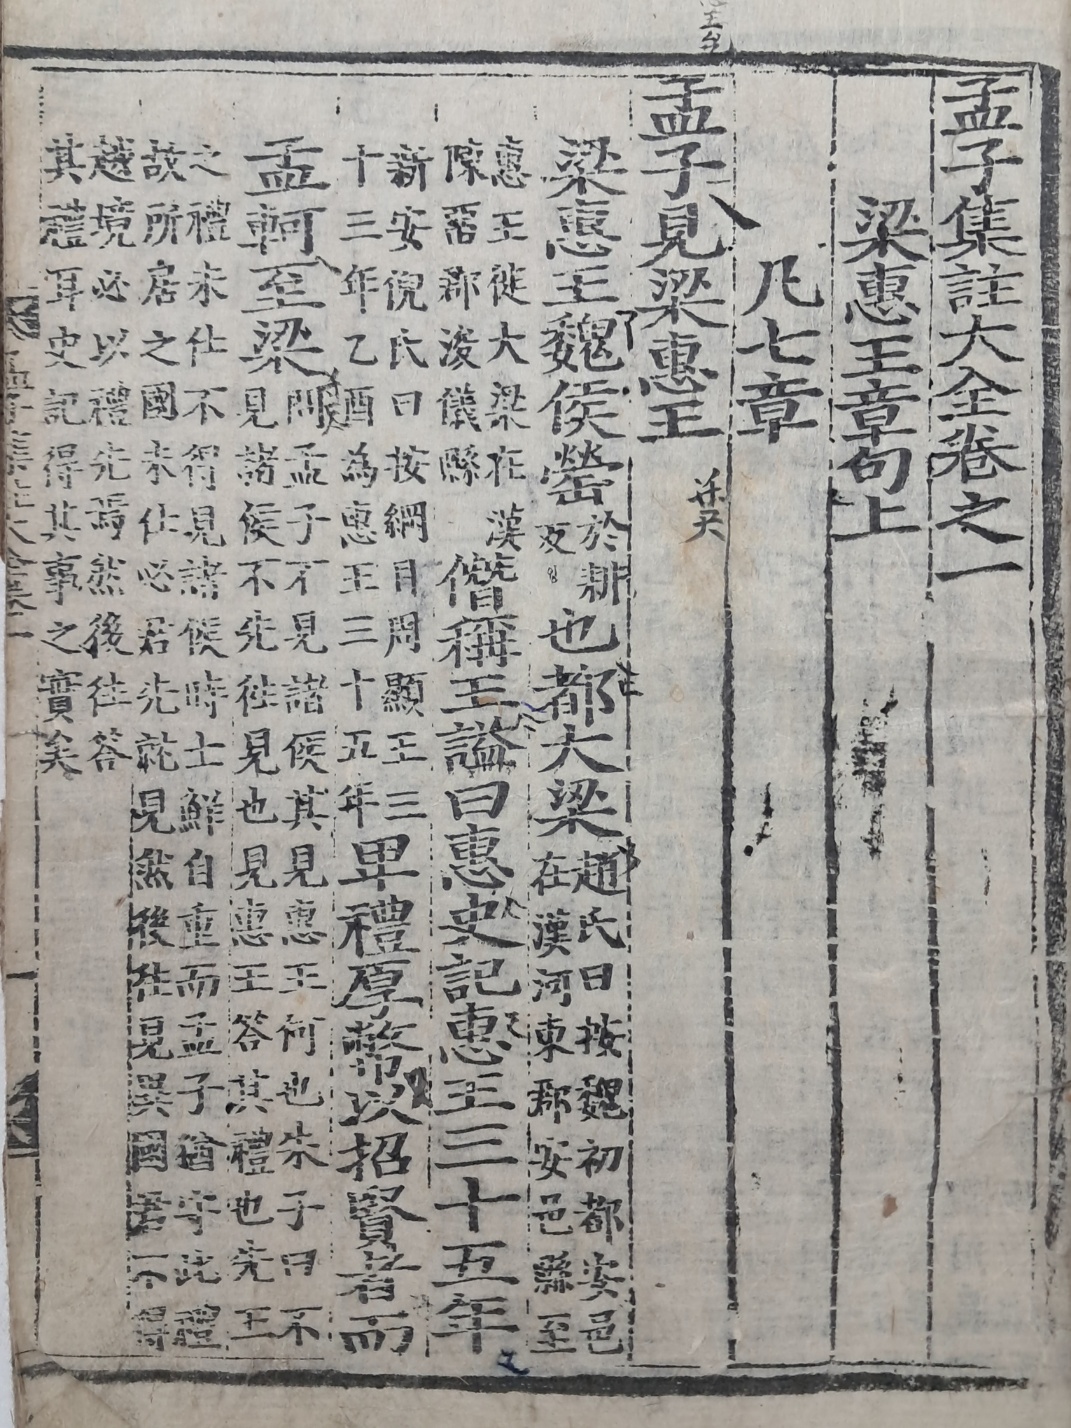 孟子集註大全卷之一
梁惠王章句上
凡七章
孟子見梁惠王
梁惠王魏侯罃
於耕
反
也都大梁
趙氏曰按魏初都安邑
在漢河東郡安邑縣至
惠王徙大梁在漢
陳留郡浚儀縣
僭稱王謚曰惠史記惠王三十五年
新安倪氏曰按綱目周顯王三
十三年乙酉為惠王三十五年
卑禮厚幣以招賢者而
孟軻至梁
問孟子不見諸侯其見惠王何也朱子曰不
見諸侯不先往見也見惠王答其禮也先王
之禮未仕不得見諸侯時士鮮自重而孟子猶守此禮
故所居之國未仕必君先就見然後往見異國君不得
越境必以禮先焉然後往答
其禮耳史記得其事之實矣